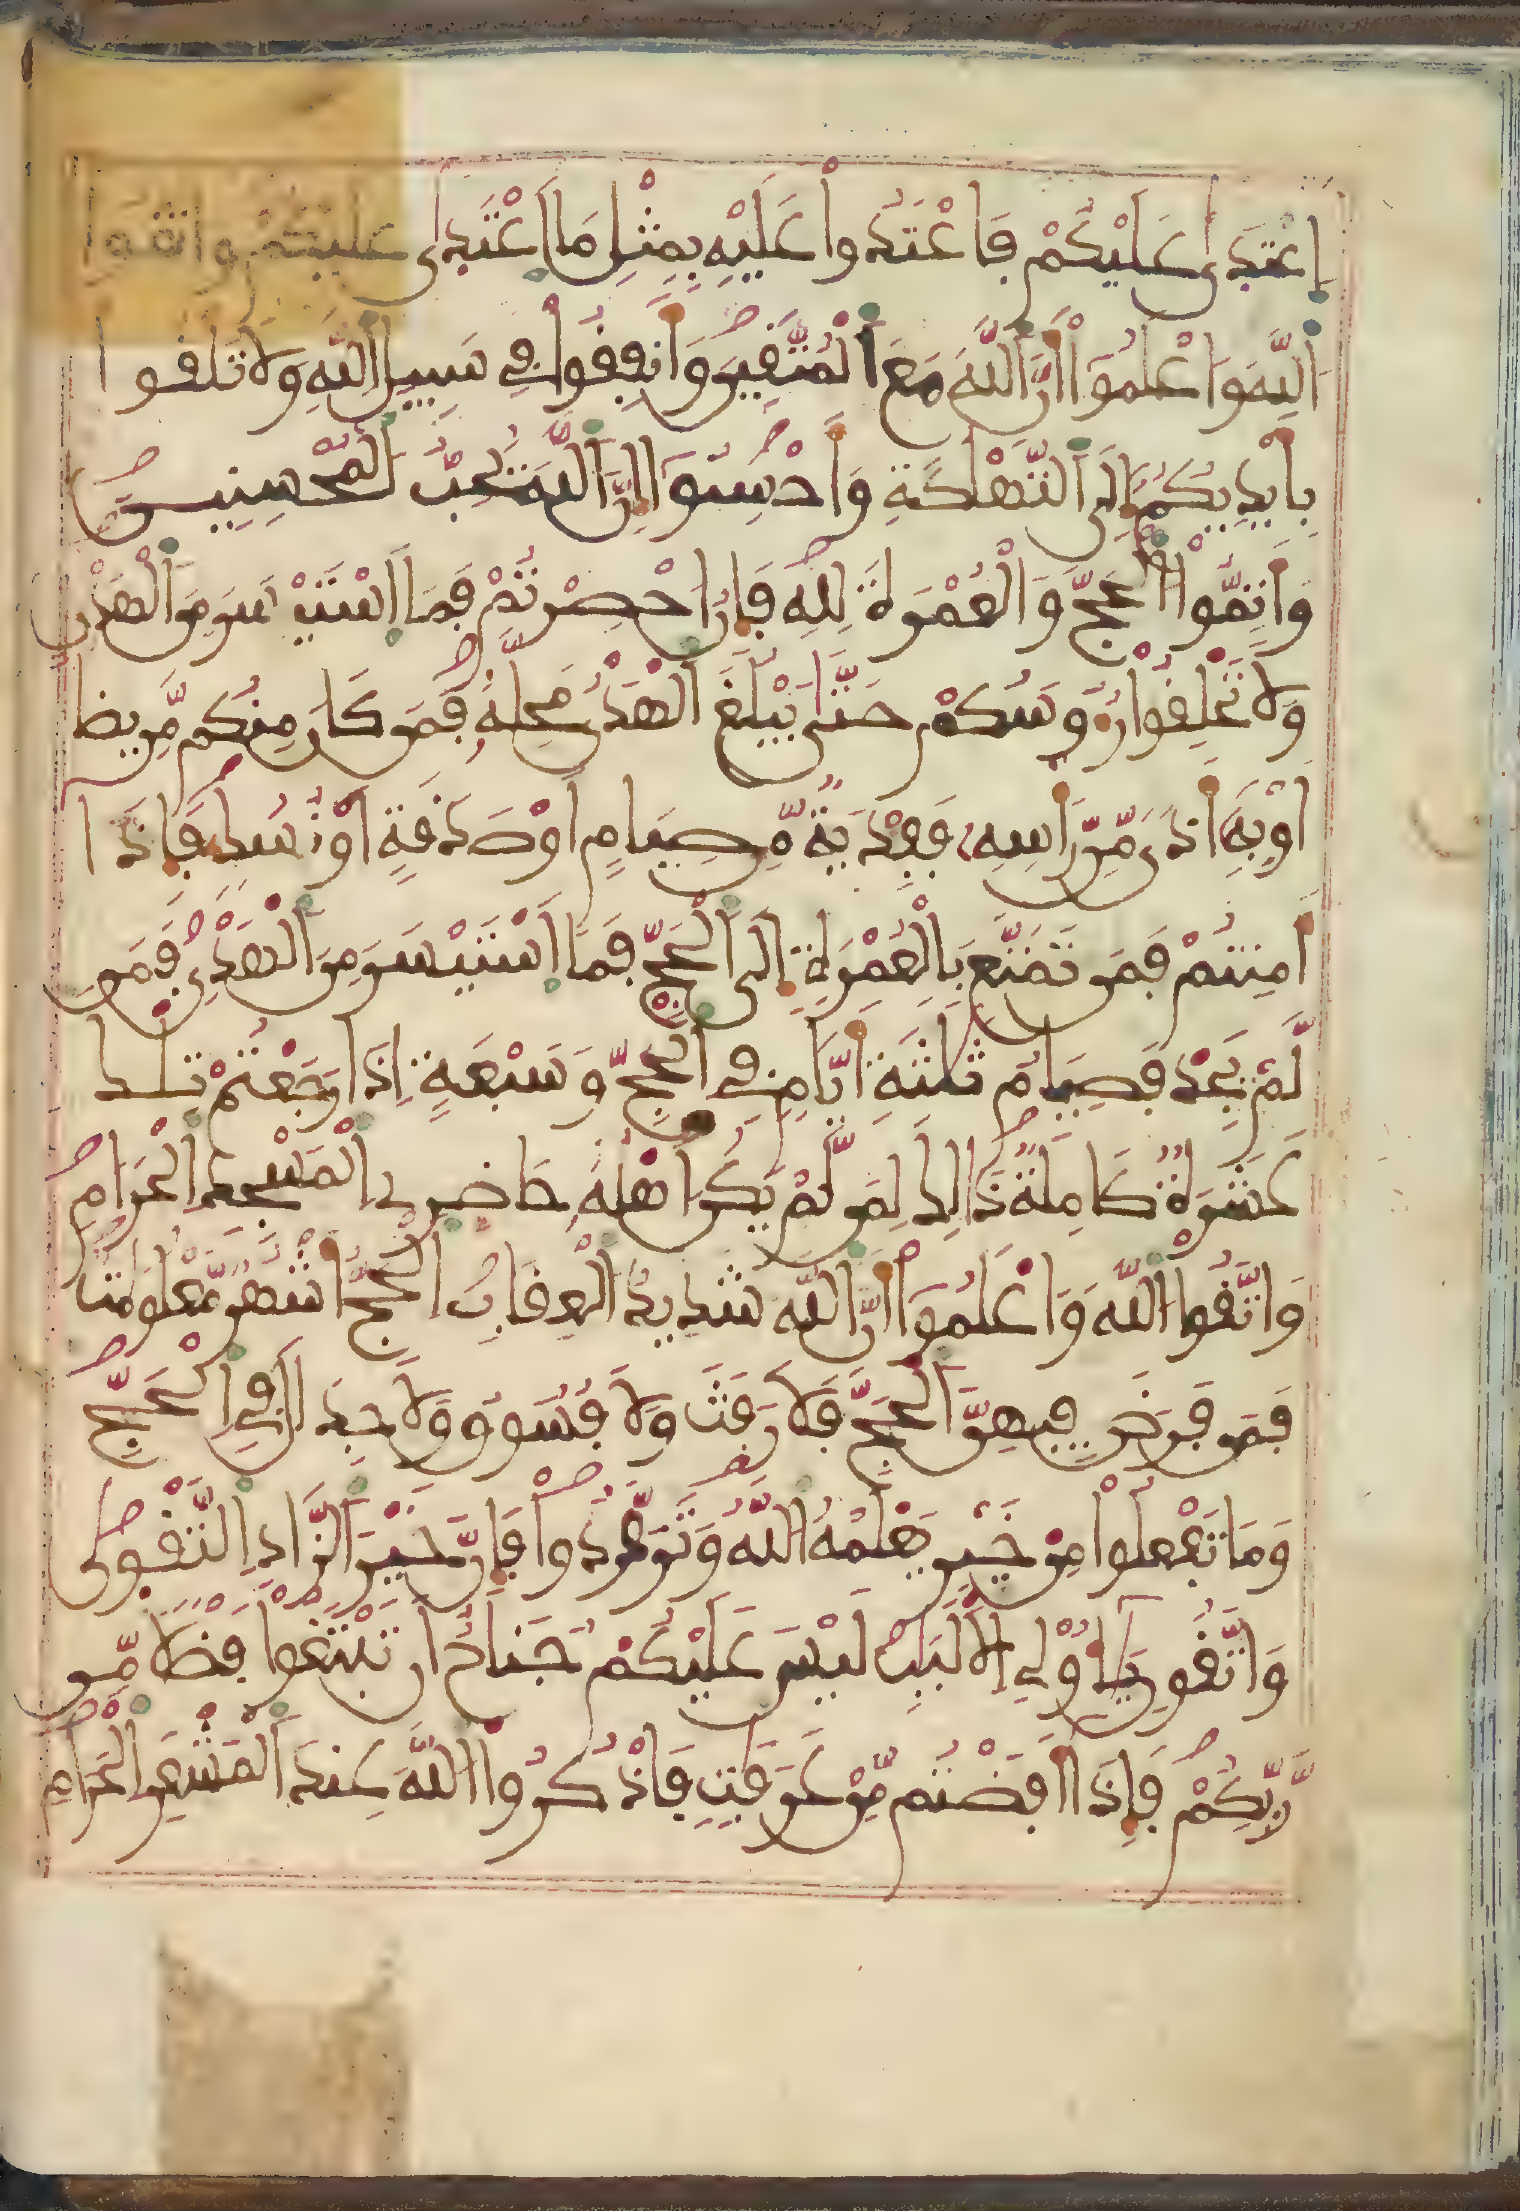 اِعْتَدٜيٰ عَلَيْكُمْ فَاعْتَدُواْ عَلَيْهِ بِمِثْلِ مَا اَعْتَدٜيٰ عَلَيْكُمْ وَاتَّقُوا
اَللَّهَ وَاعْلَمُوٓاْ أَنَّ اَللَّهَ مَعَ اَلْمُتَّقِينَ وَأَنفِقُواْ فِے سَبِيلِ اِللَّهِ وَلَا تُلْقُوا
بِأَيْدِيكُمُۥٓ إِلَي اَلتَّهْلُكَةِ وَأَحْسِنُوٓاْ إِنَّ اَللَّهَ يُحِبُّ اُلْمُحْسِنِينَ
وَأَتِمُّواْ اُلْحَجَّ وَالْعُمْرَةَ لِلهِ فَإِنُ احْصِرْتُمْ فَمَا اَسْتَيْسَرَ مِنَ اَلْهَدْيِ
وَلَا تَحْلِقُواْ رُءُوسَكُمْ حَتَّيٰ يَبْلُغَ اَلْهَدْيُ مَحِلَّهُۥ فَمَن كَانَ مِنكُم مَّرِيضا
اَوْ بِهِۦٓ أَذيً مِّن رَّأْسِهِۦ فَفِدْيَةٌ مِّن صِيَامٍ اَوْ صَدَقَةٍ اَوْ نُسُكٍ فَإِذَا
أَمِنتُمْ فَمَن تَمَتَّعَ بِالْعُمْرَةِ إِلَي اَلْحَجِّ فَمَا اَسْتَيْسَرَ مِنَ اَلْهَدْيِ فَمَن
لَّمْ يَجِدْ فَصِيَامُ ثَلَٰثَةِ أَيَّامٖ فِے اِلْحَجِّ وَسَبْعَةٍ إِذَا رَجَعْتُمْ تِلْكَ
عَشَرَةٌ كَامِلَةٌ ذَٰلِكَ لِمَن لَّمْ يَكُنَ اَهْلُهُۥ حَاضِرِے اِلْمَسْجِدِ اِلْحَرَامِ
وَاتَّقُواْ اُللَّهَ وَاعْلَمُوٓاْ أَنَّ اَللَّهَ شَدِيدُ اُلْعِقَابِ اِلْحَجُّ أَشْهُرٌ مَّعْلُومَٰتٌ
فَمَن فَرَضَ فِيهِنَّ اَلْحَجَّ فَلَا رَفَثَ وَلَا فُسُوقَ وَلَا جِدَالَ فِے اِلْحَجِّ
وَمَا تَفْعَلُواْ مِنْ خَيْرٖ يَعْلَمْهُ اُللَّهُ وَتَزَوَّدُواْ فَإِنَّ خَيْرَ اَلزَّادِ اِلتَّقْوٜيٰ
وَاتَّقُونِ يَٰٓأُوْلِے اِلَالْبَٰبِ لَيْسَ عَلَيْكُمْ جُنَاحٌ اَن تَبْتَغُواْ فَضْلًا مِّن
رَّبِّكُمْ فَإِذَآ أَفَضْتُم مِّنْ عَرَفَٰتٖ فَاذْكُرُواْ اُللَّهَ عِندَ اَلْمَشْعَرِ اِلْحَرَامِ